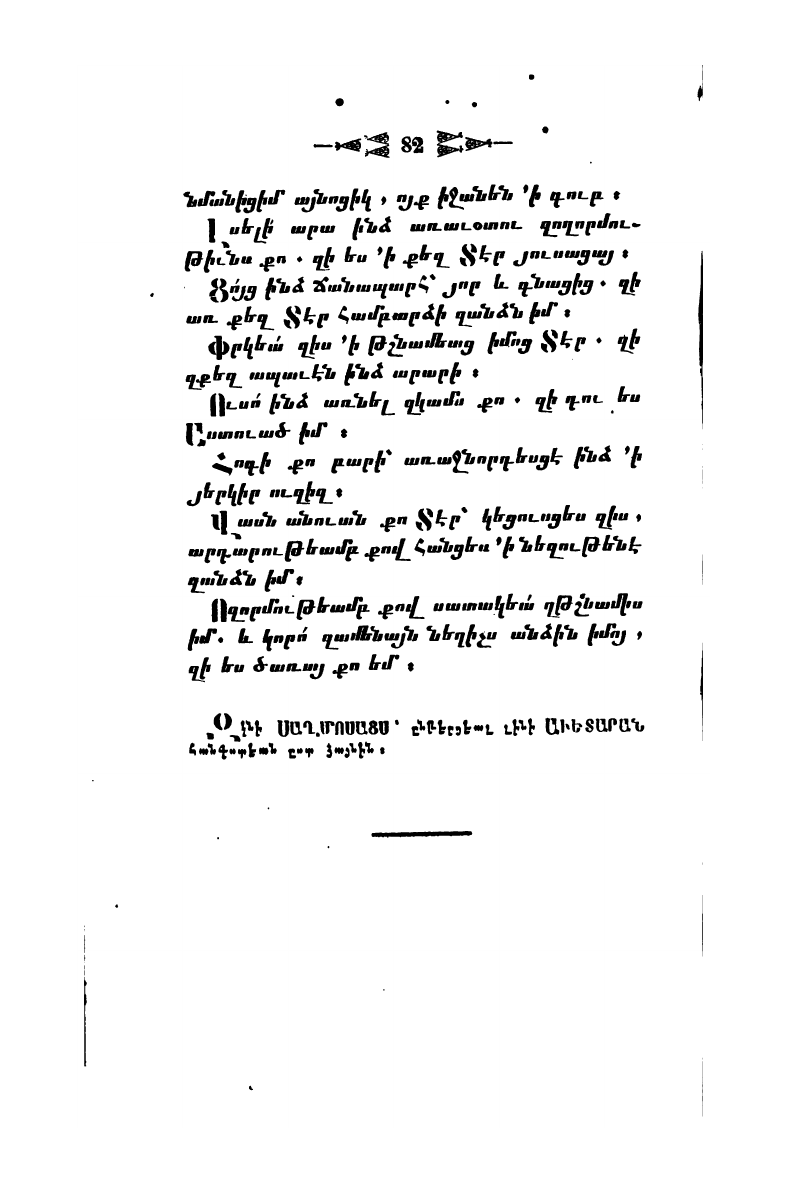 82
նմանիցիմ այնոցիկ, ոյք իջանեն ՚ի գուբ։
Լսելի՛ արա ինձ առաւօտու զողորմու-
թիւնս քո. զի ես ՚ի քեզ Տէր յուսացայ։
Ցո՛յց ինձ ճանապարհ՝ յոր և գնացից. զի
առ քեզ Տէր համբարձի զանձն իմ։
Փրկեա՛ զիս ՚ի թշնամեաց իմոց Տէր. զի
զքեզ ապաւէն ինձ արարի։
Ուսո՛ ինձ առնել զկամս քո. զի դու ես
Աստուած իմ։
Հոգի քո բարի՝ առաջնորդեսցէ ինձ ՚ի
յերկիր ուղիղ։
Վասն անուան քո Տէր՝ կեցուսցես զիս,
արդարութեամբ քով հանցես ՚ի նեղութենէ
զանձն իմ։
Ողորմութեամբ քով սատակեա՛ զթշնամիս
իմ. և կորո՛ զամենայն նեղիչս անձին իմոյ,
զի ես ծառայ քո եմ։
ԶԿՆԻ ՍԱՂՄՈՍԱՑՍ՝ ընթերցեալ լինի ԱՒԵՏԱՐԱՆ
հանգստեան ըստ ձայնին։